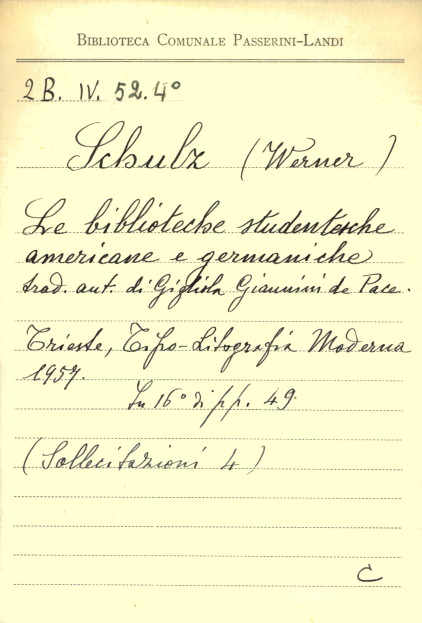 BIBLIOTECA COMUNALE PASSERINI-LANDI
2 B. IV. 52. 4°
Schulz (Werner)
Le biblioteche studentesche
americane e germaniche
trad. aut. di Gigliola Giannini de Pace.
Trieste, Tipo-Litografia Moderna
1957.
In 16° di pp. 49.
(Sollecitazioni 4)
C